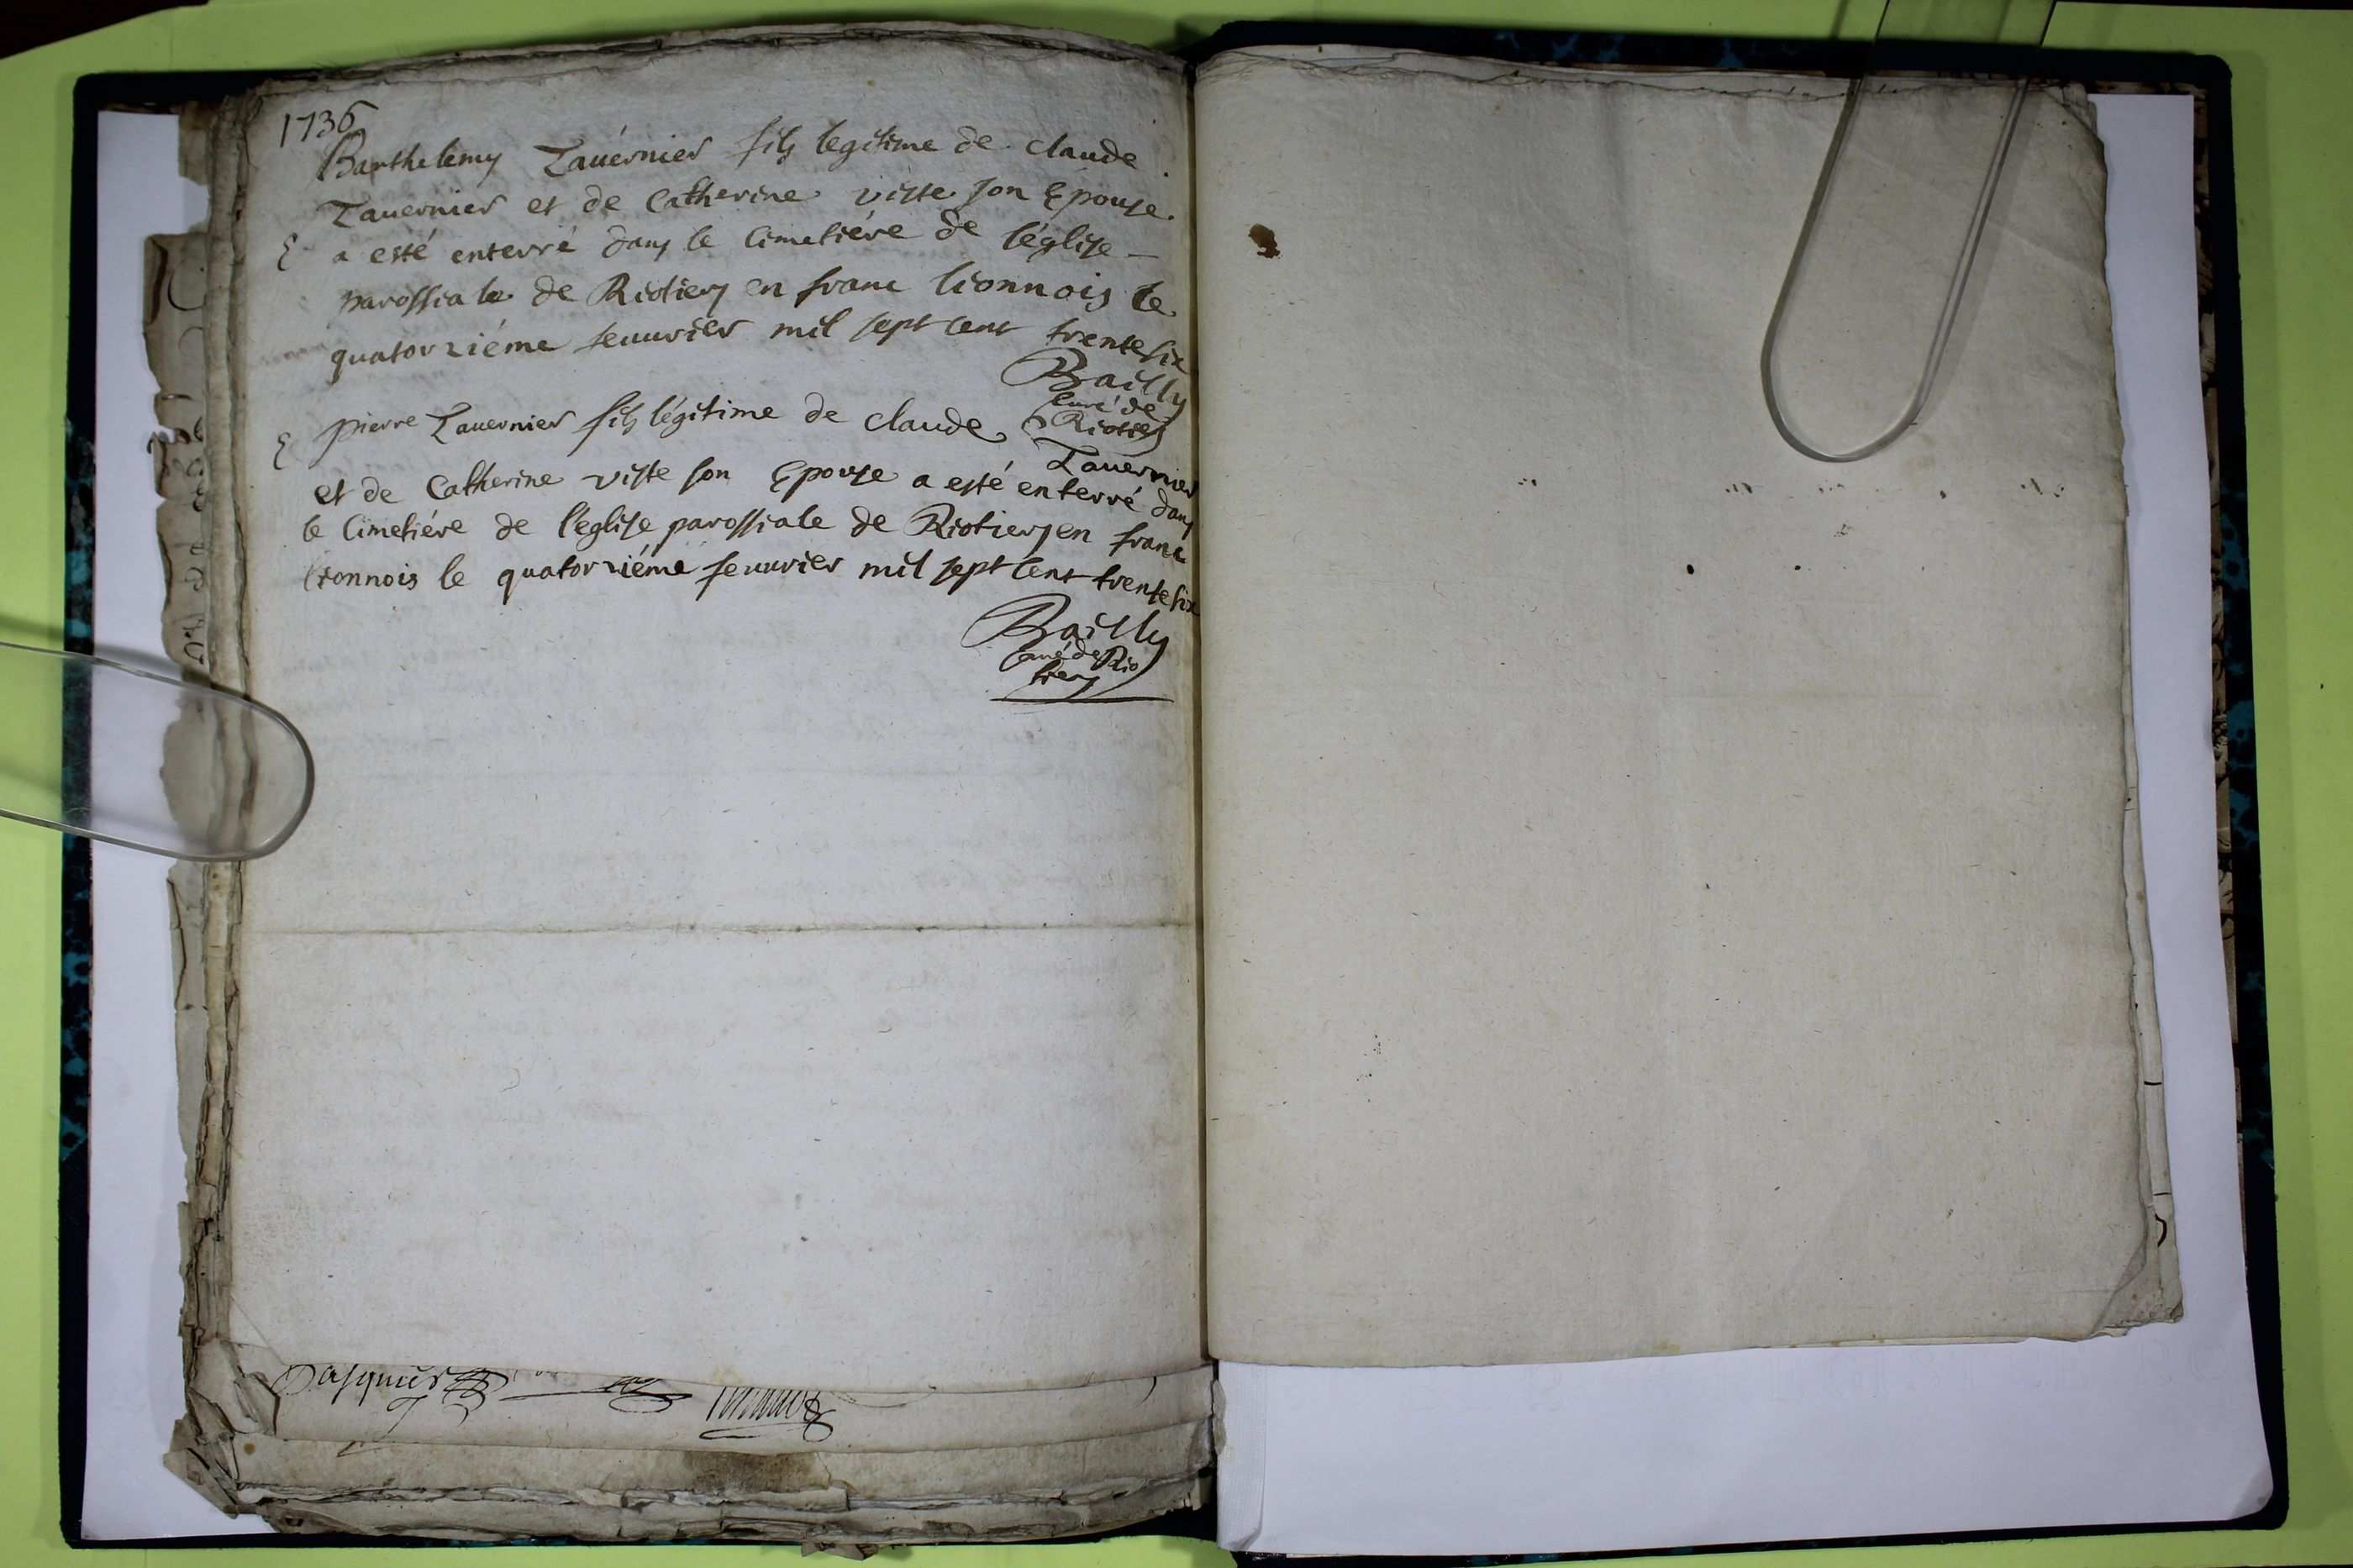 1736
Barthelemy Tavernier fils legitime de claude
Tauernier et de Catherine viste son Epouse
E a esté enterré dans le Cimetiére de l'église
parossiale de Riotiers en franc lionnois le
quatorziéme feuurier mil sept cent trente six
Bailly
Curé de
Riotiers
E pierre Tauernier fils légitime de claude Tauernier
et de Catherine viste son Epouse a esté enterré dans
le Cimetiére de l'eglise parossiale de Riotiers en franc
lionnois le quatorziéme feuurier mil sept cent trente six
Bailly
Curé de Rio
tiers